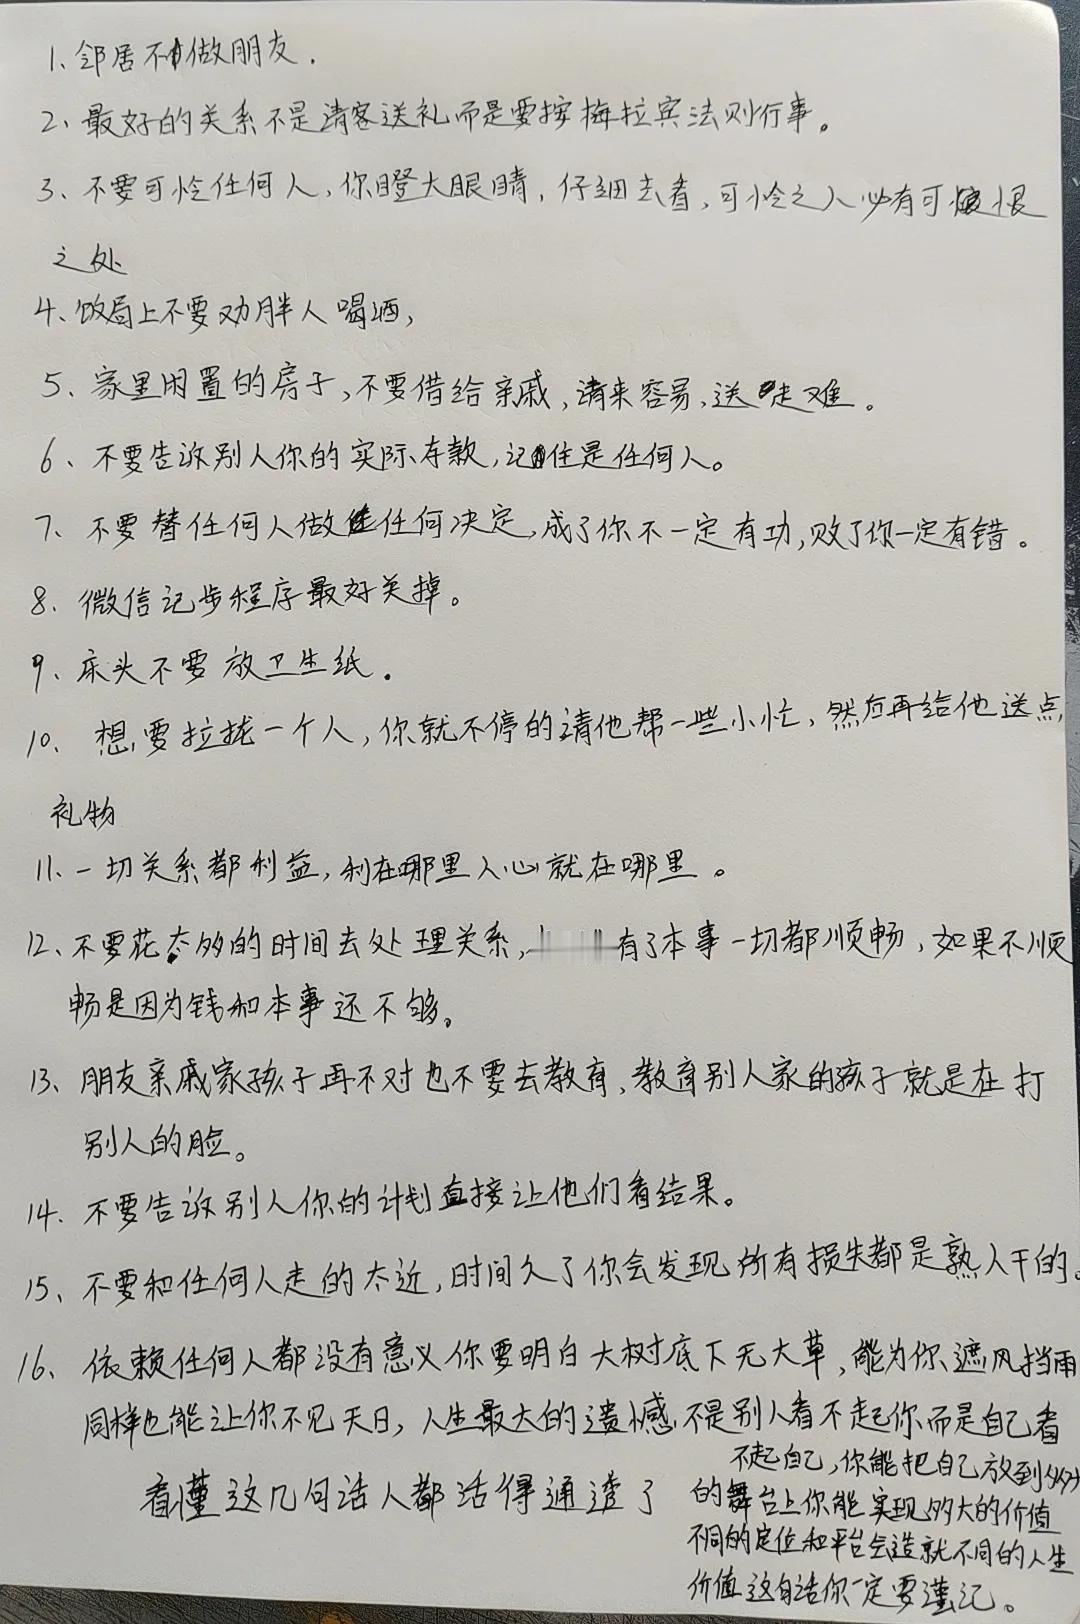 1、邻居不做朋友.
2、最好的关系不是请客送礼而是要按梅拉宾法则行事。
3、不要可怜任何人,你瞪大眼睛,仔细去看,可怜之人必有可恨
之处
4、饭局上不要劝胖人喝酒,
5、家里闲置的房子,不要借给亲戚,请来容易,送走难。
6、不要告诉别人你的实际存款,记住是任何人。
7、不要替任何人做任何决定,成了你不一定有功,败了你一定有错。
8、微信记步程序最好关掉。
9、床头不要放卫生纸.
10、想要拉拢一个人,你就不停的请他帮一些小忙,然后再给他送点
礼物
11、一切关系都利益,利在哪里人心就在哪里。
12、不要花太多的时间去处理关系,有了本事一切都顺畅,如果不顺
畅是因为钱和本事还不够。
13、朋友亲戚家孩子再不对也不要去教育,教育别人家的孩子就是在打
别人的脸。
14、不要告诉别人你的计划直接让他们看结果。
15、不要和任何人走的太近,时间久了你会发现所有损失都是熟人干的。
16、依赖任何人都没有意义你要明白大树底下无大草,能为你遮风挡雨
同样也能让你不见天日,人生最大的遗憾不是别人看不起你而是自己看
不起自己,你能把自己放到多大
的舞台上你能实现多大的价值
不同的定位和平台会造就不同的人生
价值这句话你一定要谨记。
看懂这几句话人都活得通透了